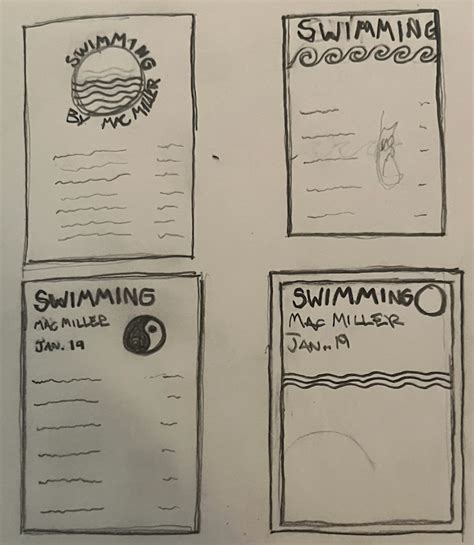 SWIMMING
By MAC MILLER
SWIMMING
SWIMMING
MAC MILLER
JAN. 19
SWIMMING
MAC MILLER
JAN. 19